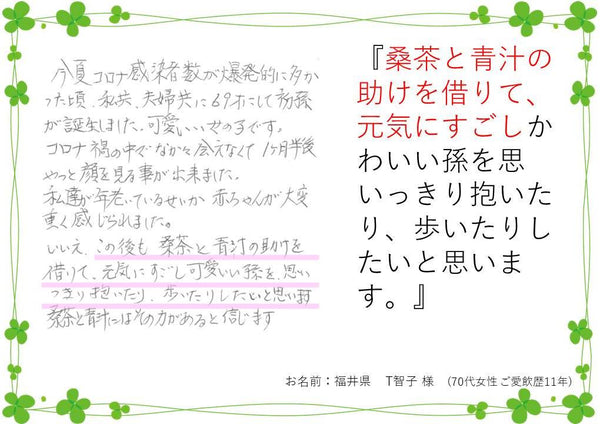 今夏コロナ感染者数が爆発的に多か
った頃、私共、夫婦共に69才にして初孫
が誕生しました。可愛いい女の子です。
コロナ禍の中でなかなか会えなくて1ヶ月半後
やっと顔を見る事が出来ました。
私達が年老いているせいか赤ちゃんが大変
重く感じられました。
いいえ、この後も桑茶と青汁の助けを
借りて、元気にすごし可愛いい孫を、思い
つきり抱いたり、歩いたりしたいと思います
桑茶と青汁にはその力があると信じます
『桑茶と青汁の
助けを借りて、
元気にすごしか
わいい孫を思
いっきり抱いた
り、歩いたりし
たいと思いま
す。』
お名前:福井県 T智子 様 (70代女性 ご愛飲歴11年)